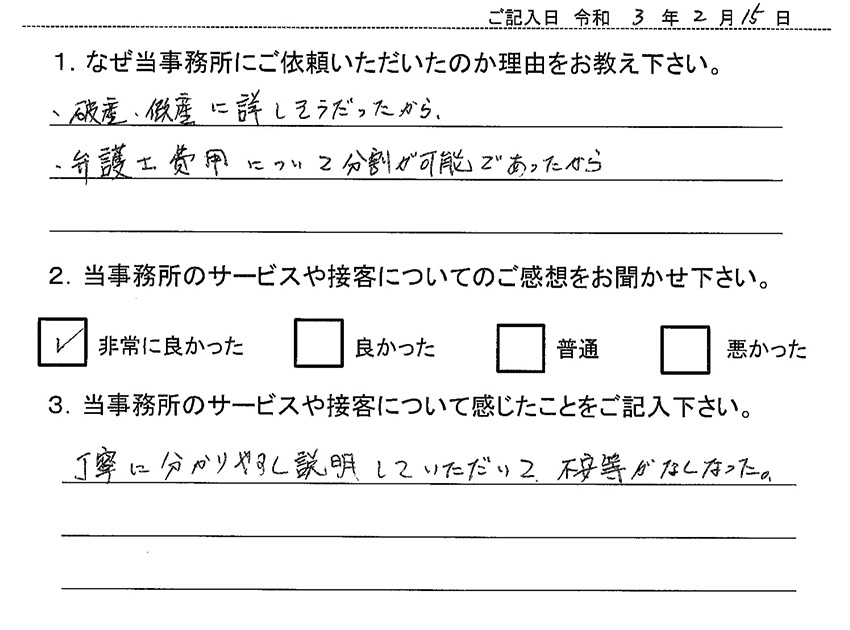 ご記入日 令和 3 年 2 月 15 日
1. なぜ当事務所にご依頼いただいたのか理由をお教え下さい。
・破産、倒産に詳しそうだったから、
・弁護士費用について分割が可能であったから
2. 当事務所のサービスや接客についてのご感想をお聞かせ下さい。
✓ 非常に良かった 良かった 普通 悪かった
3. 当事務所のサービスや接客について感じたことをご記入下さい。
丁寧に分かりやすく説明していただいて、不安等がなくなった。